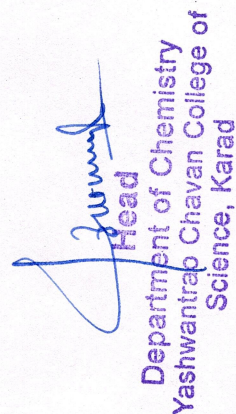 Head
Department of Chemistry
Yashwantrao Chavan College of
Science, Karad